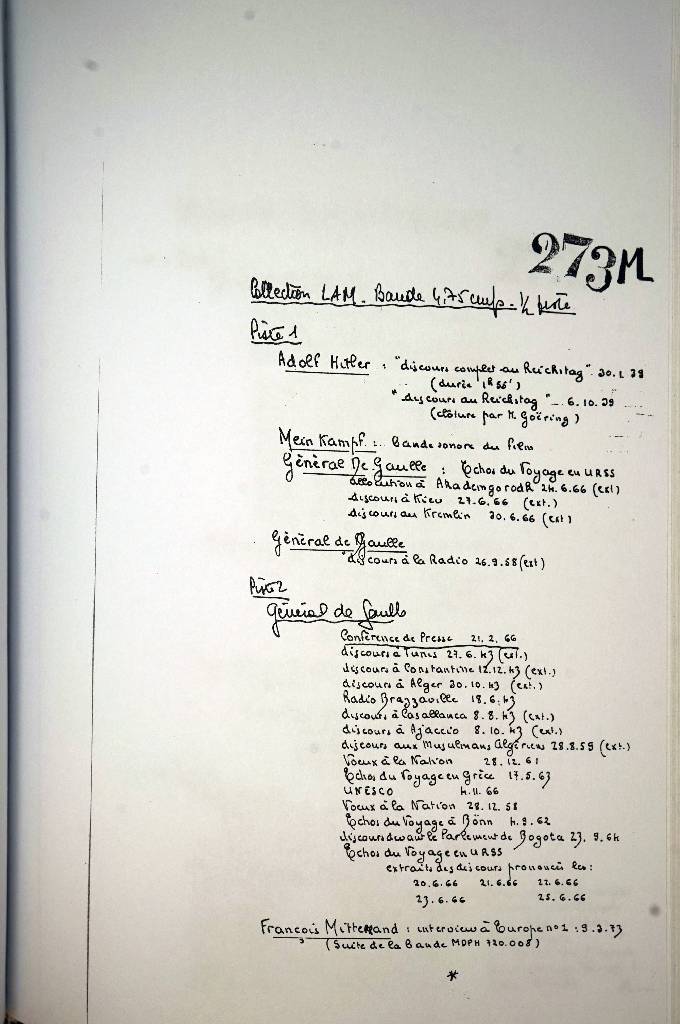 273M
Collection LAM. Bande 4,75 cm/s - 1/2 piste
Piste 1
Adolf Hitler : "discours complet au Reichstag" 30.1.39
(durée 1h55')
"discours au Reichstag" - 6.10.39
(clôture par H. Goëring)
Mein Kampf : Bande sonore du film
Général De Gaulle : Echos du Voyage en URSS
allocution à Akademgorodk 24.6.66 (ext)
discours à Kiev 27.6.66 (ext.)
discours au Kremlin 30.6.66 (ext)
Général de Gaulle
discours à la Radio 26.9.58 (ext)
Piste 2
Général de Gaulle
Conférence de Presse 21.2.66
discours à Tunis 27.6.43 (ext.)
discours à Constantine 12.12.43 (ext.)
discours à Alger 30.10.43 (ext.)
Radio Brazzaville 18.6.43
discours à Casablanca 8.8.43 (ext.)
discours à Ajaccio 8.10.43 (ext.)
discours aux Musulmans Algériens 28.8.59 (ext.)
Voeux à la Nation 28.12.61
Echos du Voyage en Grèce 17.5.63
UNESCO 4.11.66
Voeux à la Nation 28.12.58
Echos du Voyage à Bönn 4.9.62
discours devant le Parlement de Bogota 23.9.64
Echos du Voyage en URSS
extraits des discours prononcés les :
20.6.66 21.6.66 22.6.66
23.6.66 25.6.66
François Mitterrand : interview à Europe n°1 : 9.3.73
(Suite de la Bande MDPH 720.008)
*